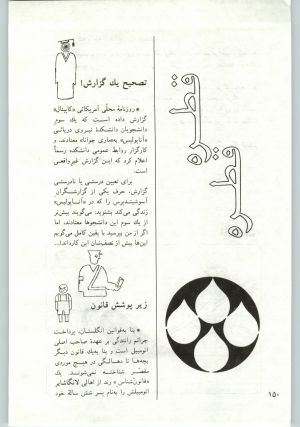 قطره
قطره
تصحیح یك گزارش!
● روزنامهٔ محلّی آمریکائی «کاپیتال»
گزارش داده است که یك سوم
دانشجویان دانشکدهٔ نیروی دریائی
«آناپولیس» به«ماری جوانا» معتادند، و
کارگزار روابط عمومی دانشکده رسماً
اعلام کرد که این گزارش غیرواقعی
است.
برای تعیین درستی یا نادرستی
گزارش، حرف یکی از گزارشگران
آسوشیتدپرس را که در «آناپولیس»
زندگی می‌کند بشنوید: می‌گویند بیش‌تر
از یك سوم این دانشجوها معتادند، اما
اگر از من بپرسید با یقین کامل می‌گویم
این‌ها بیش از نصف‌شان این کاره‌اند!...
زیر پوشش قانون
● بنا به‌قوانین انگلستان، پرداخت
جرائم رانندگی بر عهدهٔ صاحب اصلی
اتومبیل است و بنا به‌یك قانون دیگر
بچه‌ها تا ده‌سالگی در هیچ موردی
مقصّر شناخته نمی‌شوند. یك
«قانون‌شناس» رند از اهالی لانکاشایر
اتومبیلش را به‌نام پسر شش سالهٔ خود
۱۵۰